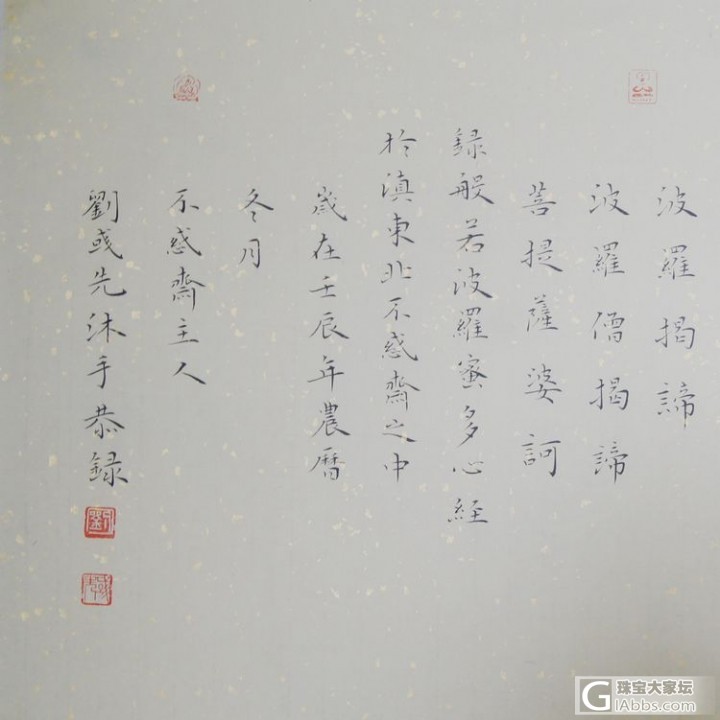 波羅揭諦
波羅僧揭諦
菩提薩婆訶
録般若波羅蜜多心経
於滇東北不惑齋之中
歲在壬辰年農曆
冬月
不惑齋主人
劉彧先沐手恭録
劉
珠宝大家坛
GIAbbs.com